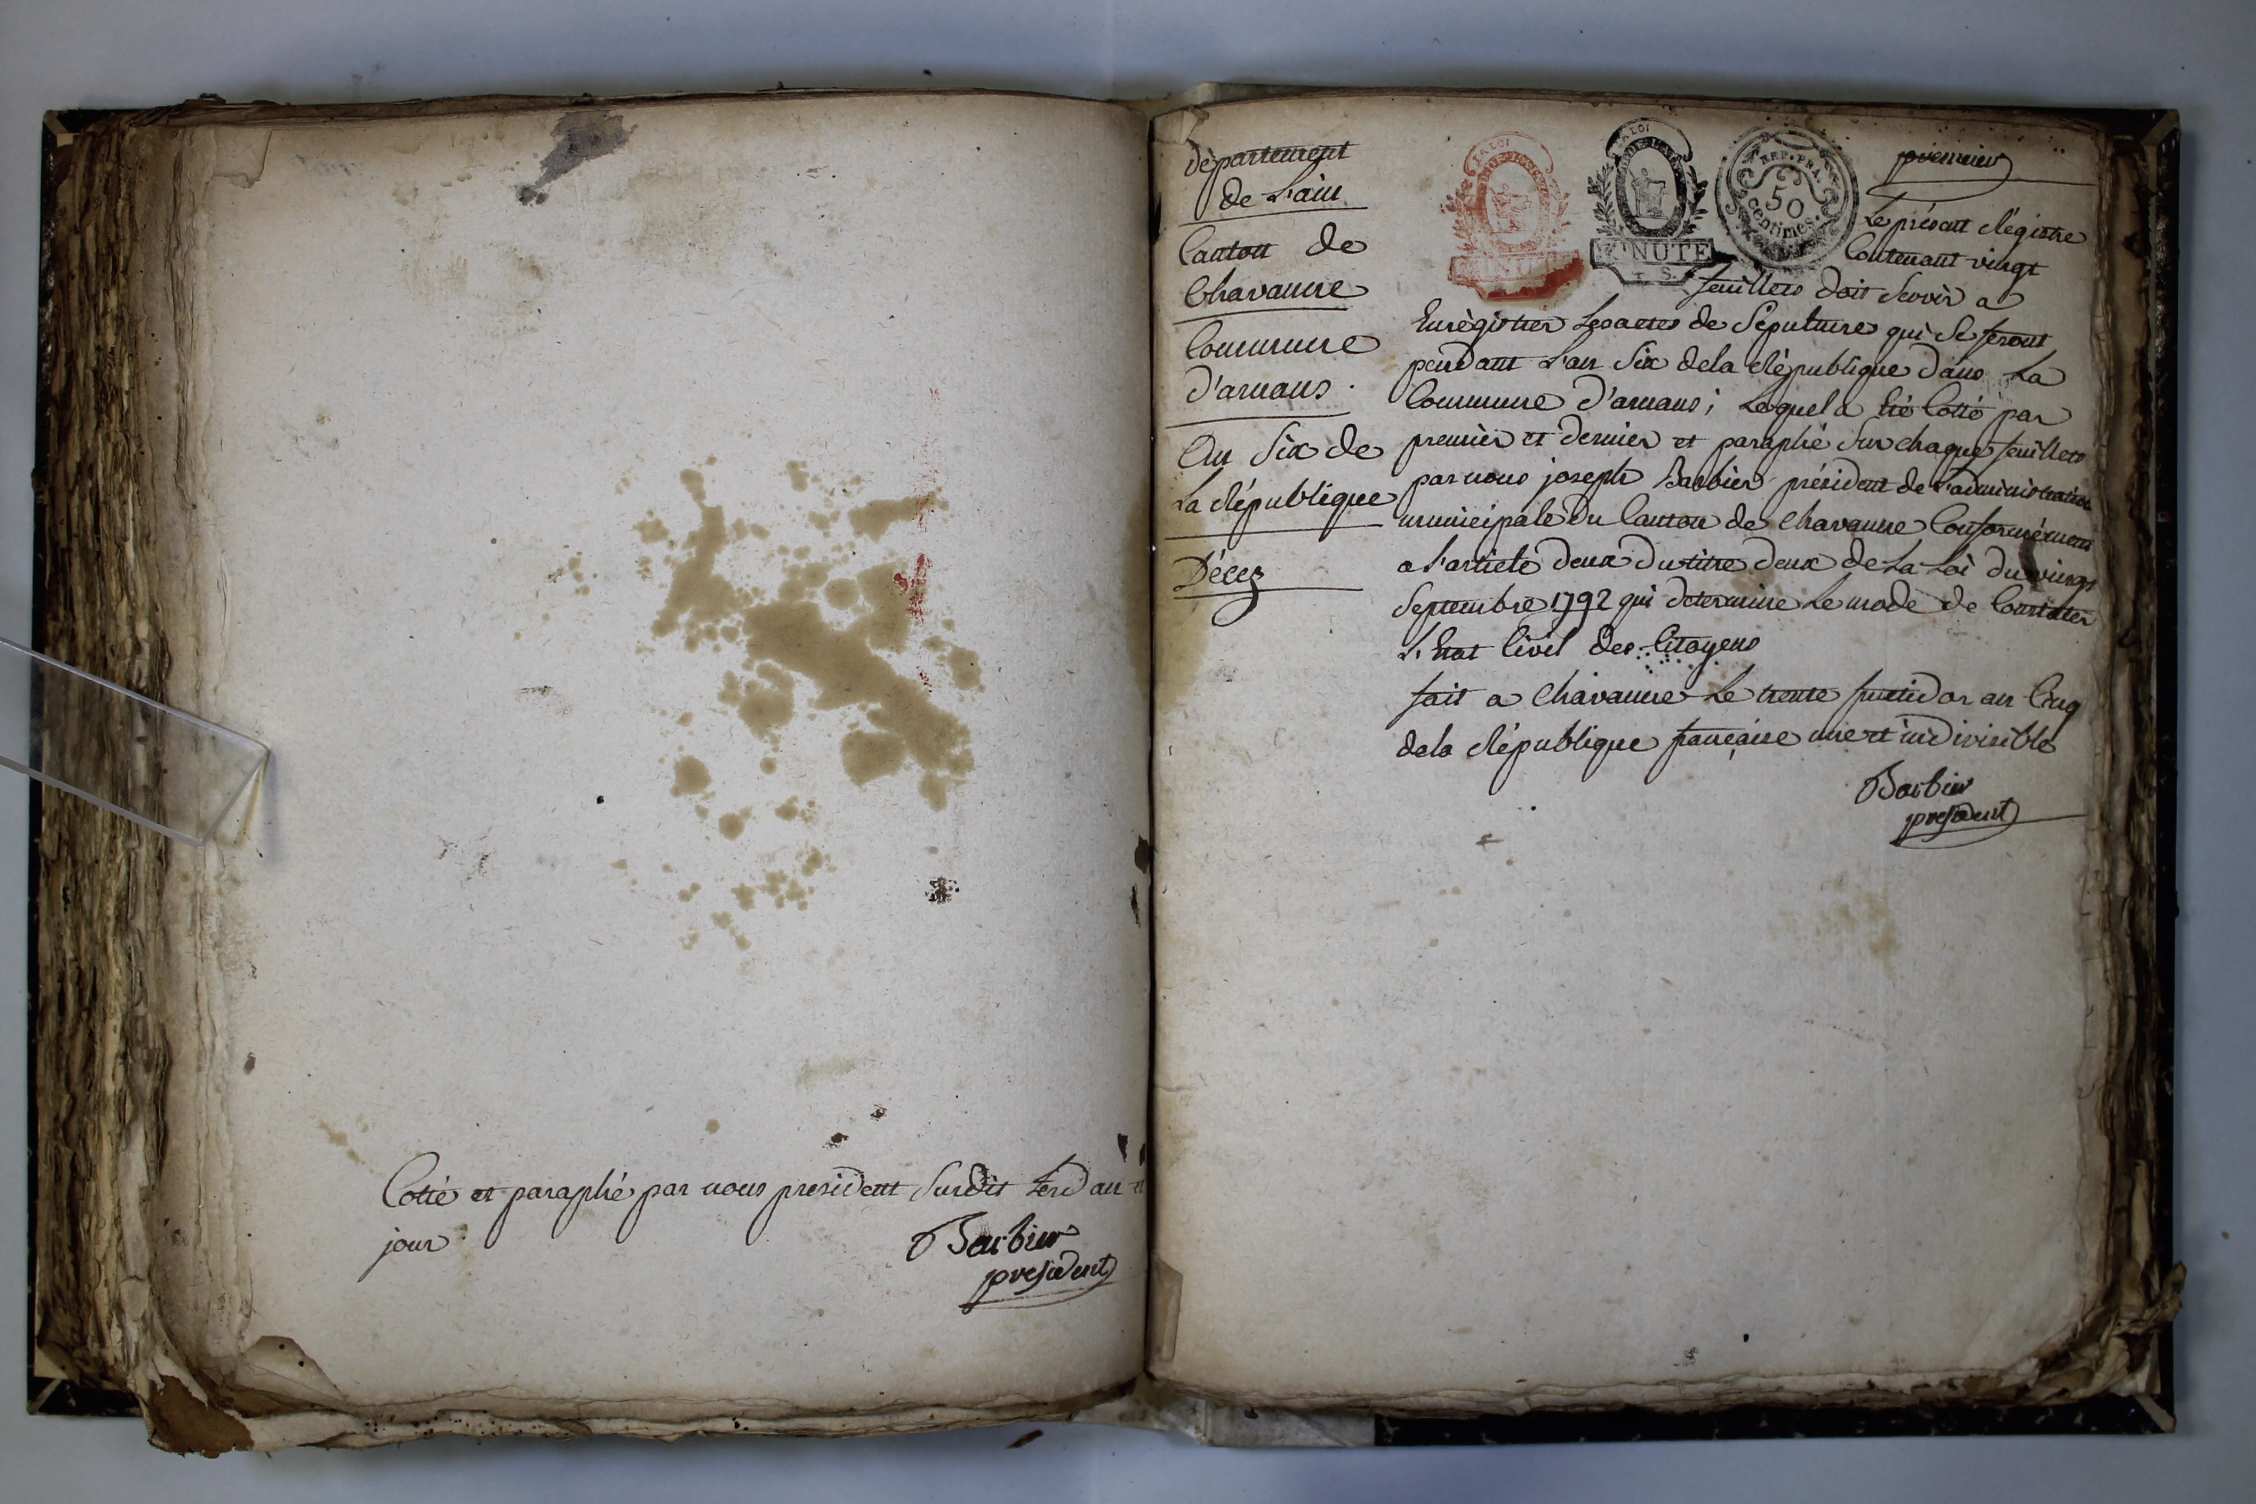 Cotté et paraphié par nous president Surdit Lesd an et
jour
Barbier
president
département
de L'ain
Canton de
Chavanne
Commune
d'arnans.
An Six de
La République
Décez
LA LOI
MINUTE
LA LOI
MINUTE
REP. FRA.
50
centimes.
premier
Le présent Régistre
Contenant vingt
feuillets doit servir a
Enrègistrer Les actes de Sépulture qui se feront
pendant L'an Six de la République dans La
Commune d'arnans; Lequel a Eté Cotté par
premier et dernier et paraphé Sur chaque feuillets
par nous joseph Barbier président de L'administration
municipale du Canton de Chavanne Conformément
a L'article deux du titre deux de La Loi du vingt
Septembre 1792 qui determine Le mode de Constater
L'Etat Civil des Citoyens
fait a Chavanne Le trente fructidor an Cinq
de la République française une et indivisible
Barbier
president